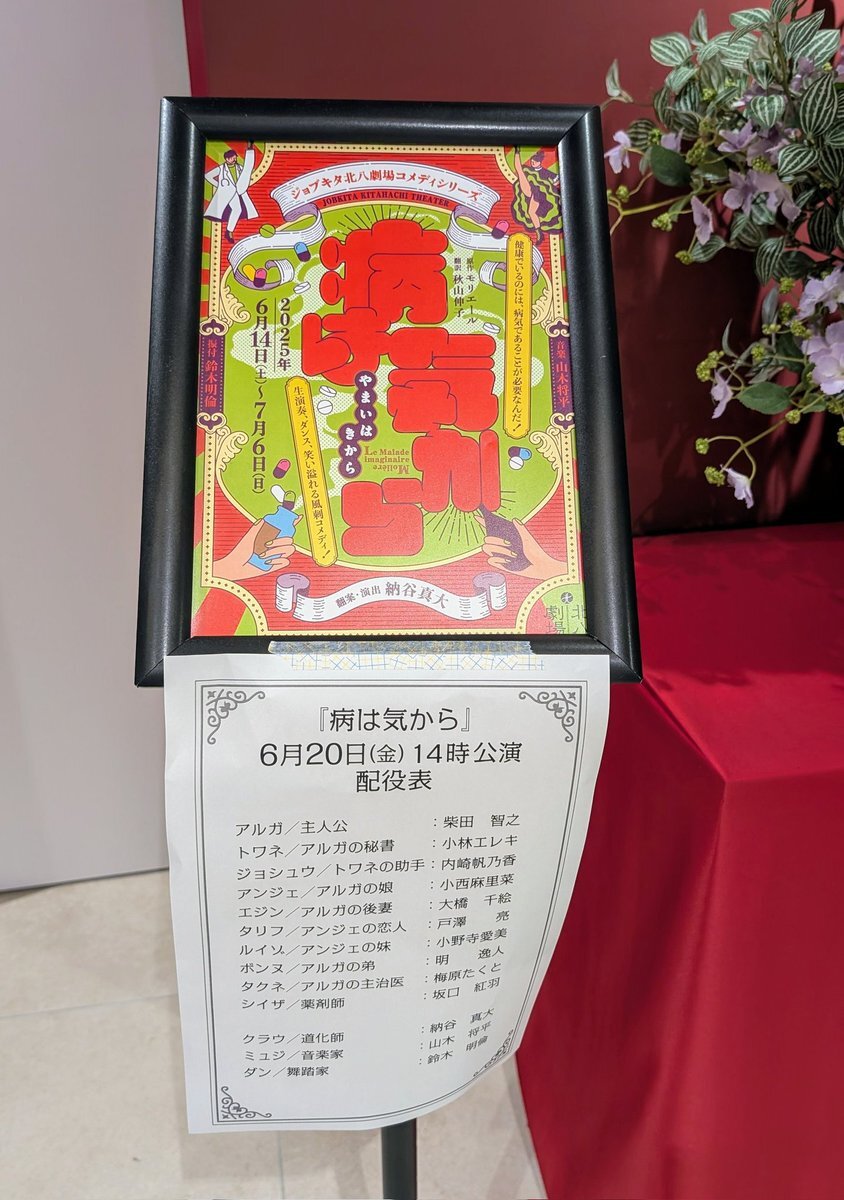 ジョブキタ北八劇場コメディシリーズ
JOBKITA KITAHACHI THEATER
健康でいるのには、病気であることが必要なんだ!
原作 モリエール
翻訳 秋山伸子
病は気から
やまいは
きから
Le Malade
imaginaire
Molière
2025年
6月14日(土)~7月6日(日)
生演奏、ダンス、笑い溢れる風刺コメディ!
音楽 山木将平
振付 鈴木明倫
翻案・演出 納谷真大
北八
劇場
『病は気から』
6月20日(金) 14時公演
配役表
アルガ/主人公 :柴田 智之
トワネ/アルガの秘書 :小林エレキ
ジョシュウ/トワネの助手:内崎帆乃香
アンジェ/アルガの娘 :小西麻里菜
エジン/アルガの後妻 :大橋 千絵
タリフ/アンジェの恋人 :戸澤 亮
ルイゾ/アンジェの妹 :小野寺愛美
ボンヌ/アルガの弟 :明 逸人
タクネ/アルガの主治医 :梅原たくと
シイザ/薬剤師 :坂口 紅羽
クラウ/道化師 :納谷 真大
ミュジ/音楽家 :山木 将平
ダン/舞踏家 :鈴木 明倫